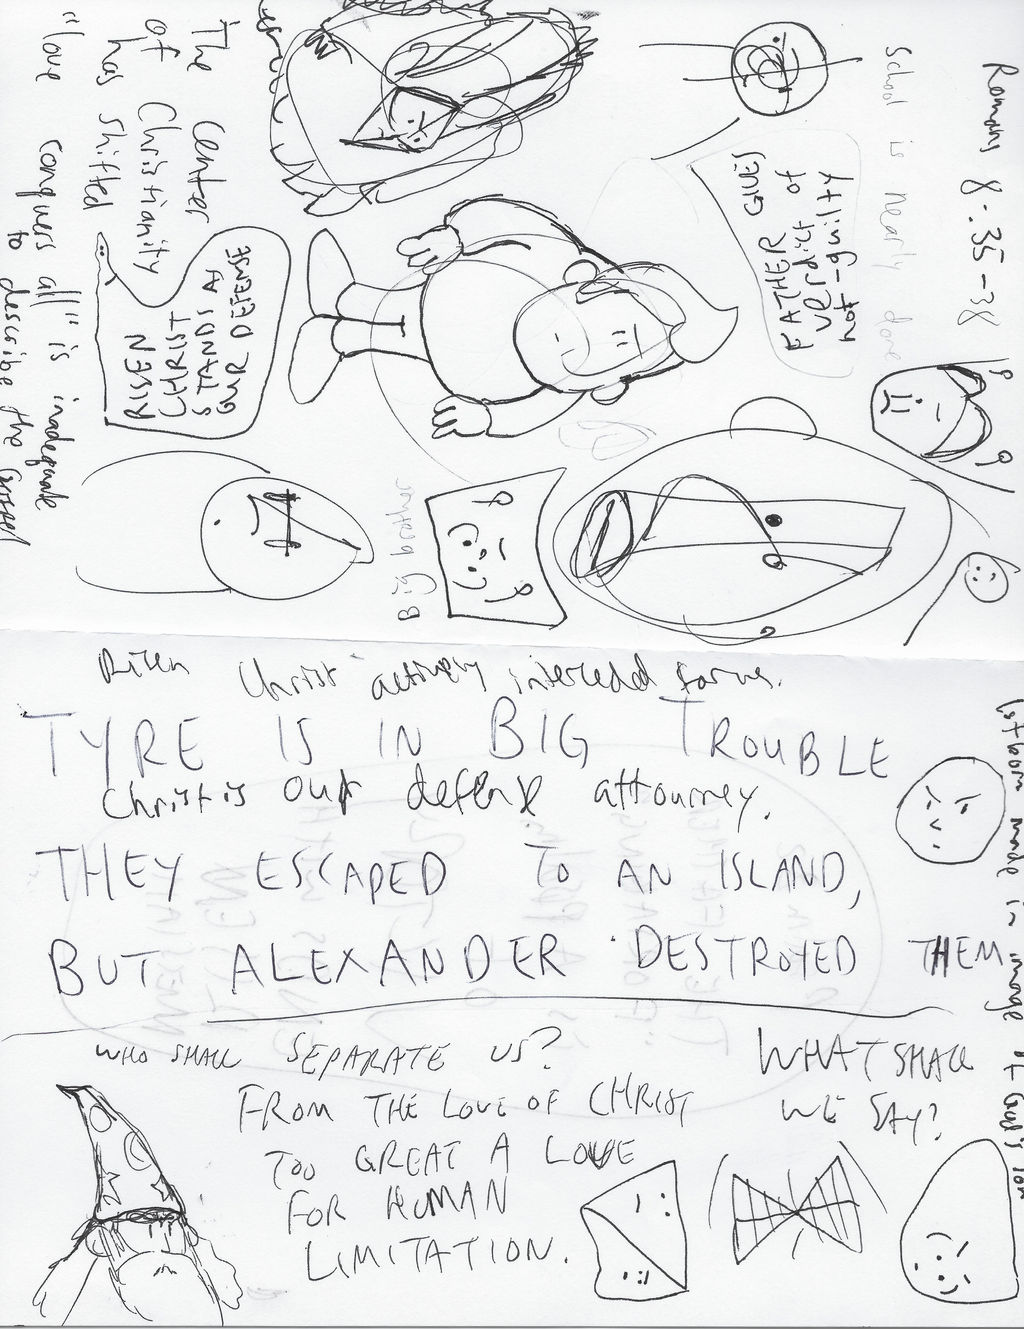 Romans 8:35-38
School is nearly done
FATHER GIVES
verdict of
not-guilty
The Center
of Christianity
has shifted
"love conquers all" is inadequate
to describe the
RISEN
CHRIST
STANDS A
OUR DEFENSE
Big brother
Risen Christ actively interceded for us.
TYRE IS IN BIG TROUBLE
Christ is our defense attourney.
THEY ESCAPED TO AN ISLAND,
BUT ALEXANDER DESTROYED THEM
1st born made in image of God's son
WHO SHALL SEPARATE US?
FROM THE LOVE OF CHRIST
TOO GREAT A LOVE
FOR HUMAN
LIMITATION.
WHAT SHALL
WE SAY?